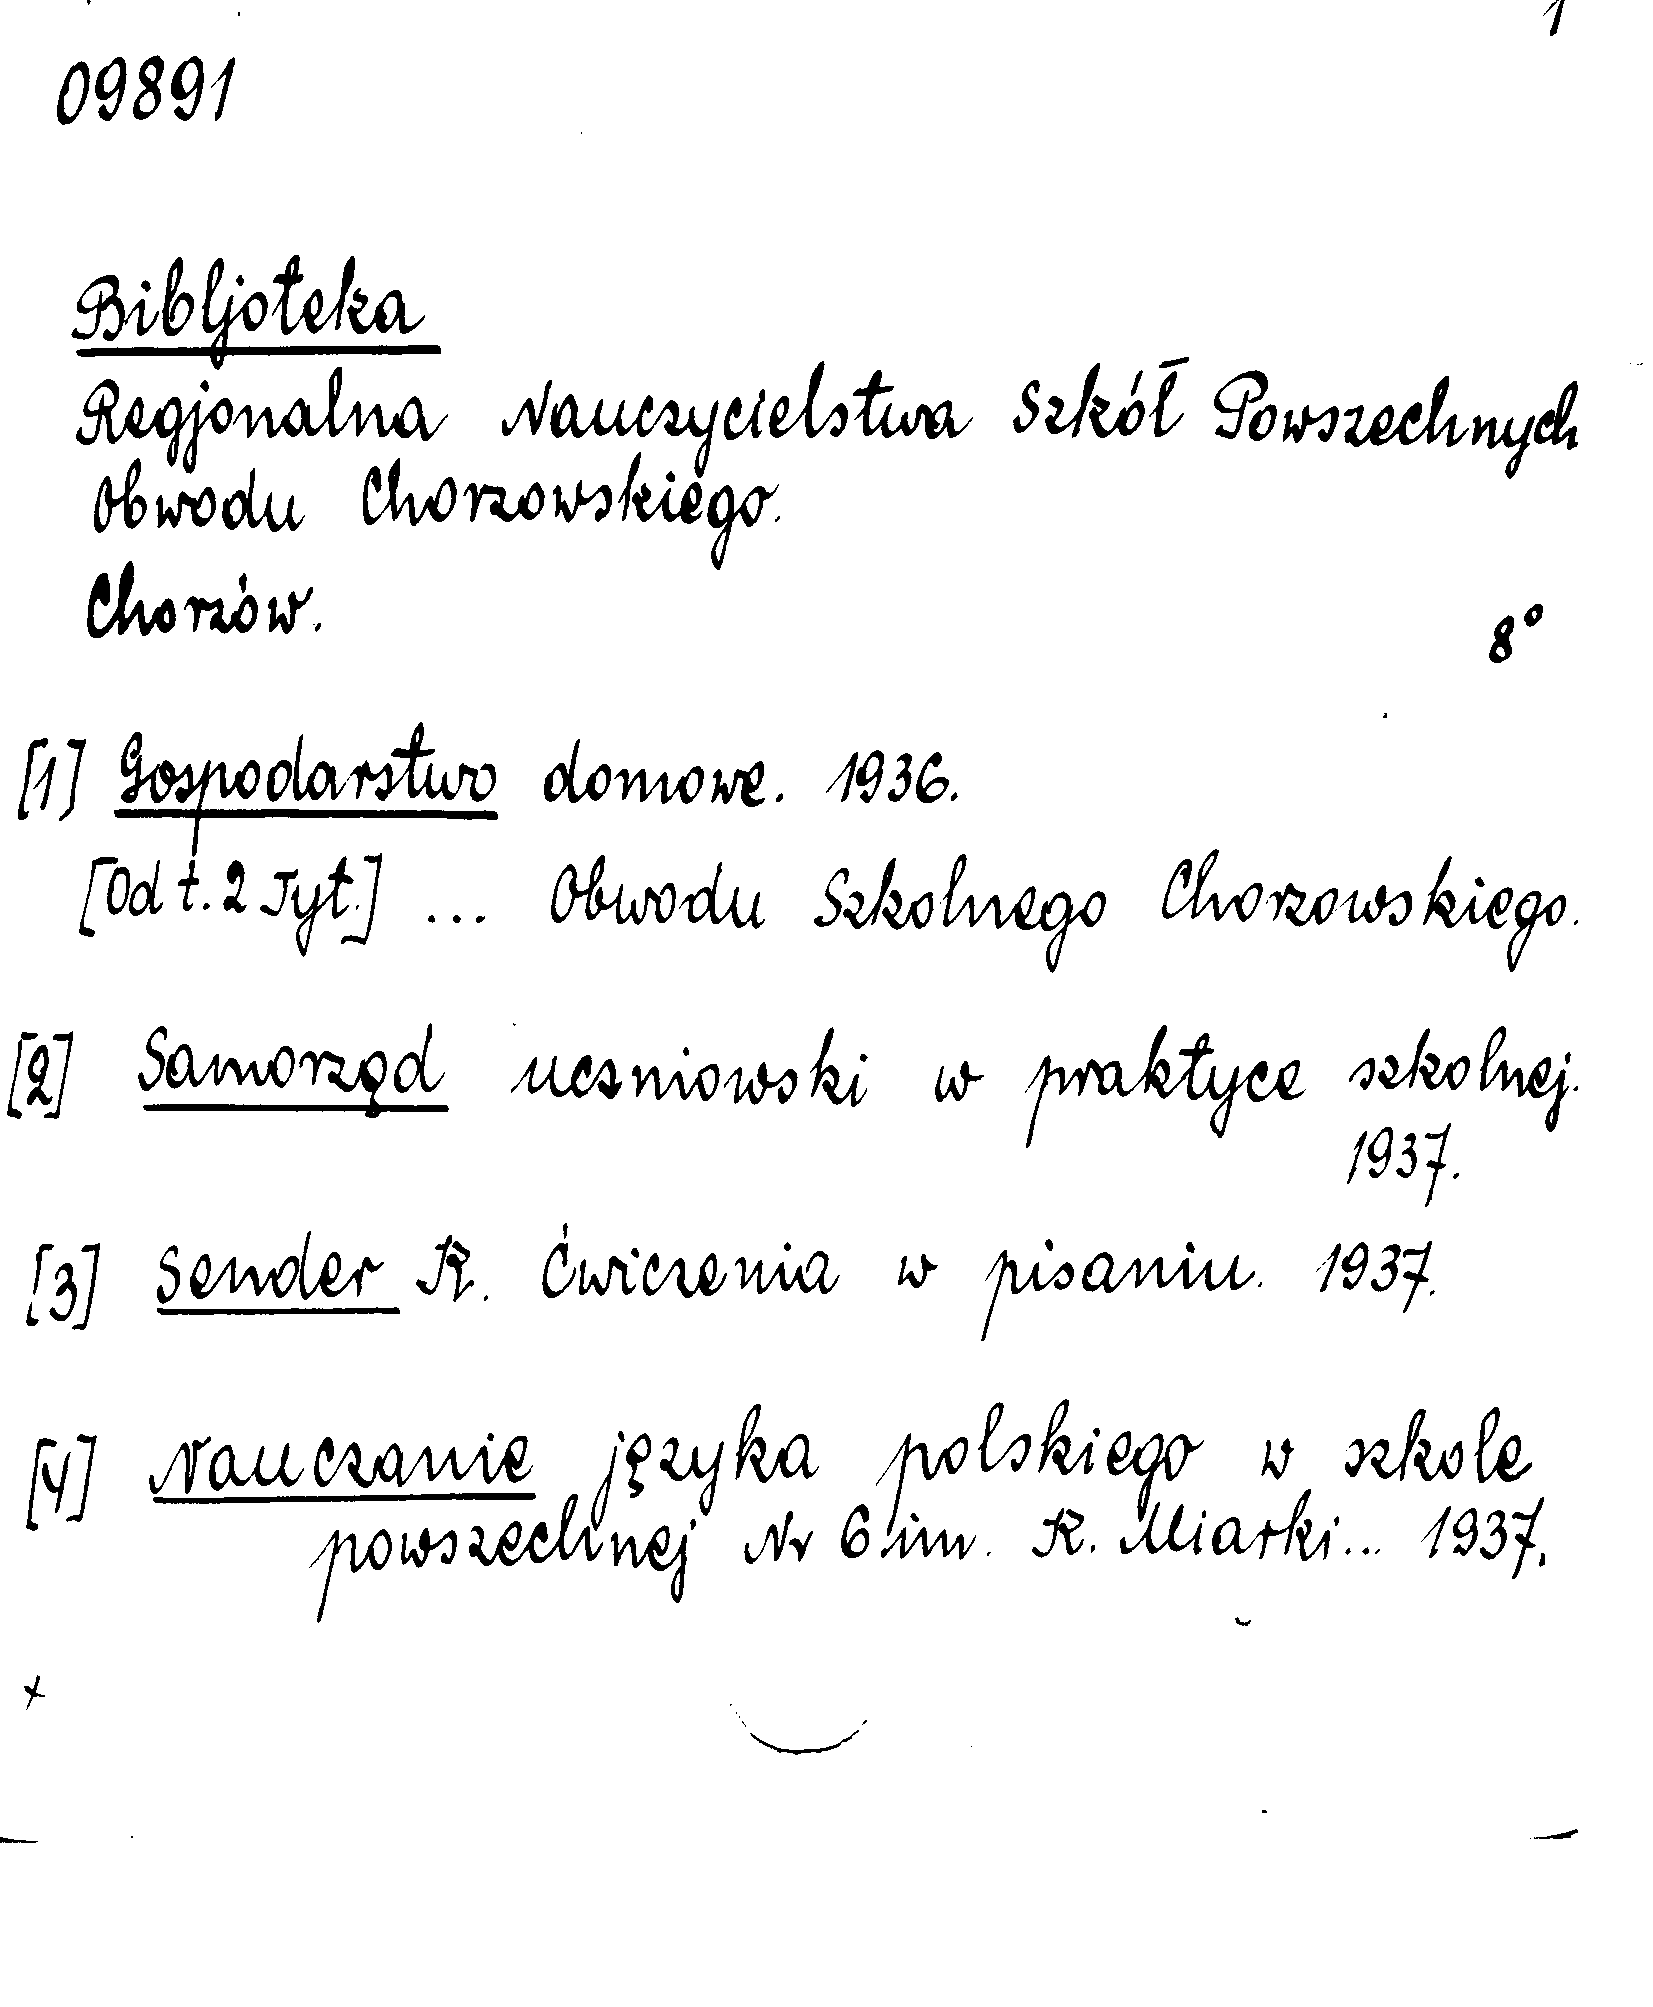 1
09891
Bibljoteka
Regjonalna Nauczycielstwa Szkół Powszechnych
Obwodu Chorzowskiego.
Chorzów.
8°
[1] Gospodarstwo domowe. 1936.
[Od t. 2 Tyt.] ... Obwodu Szkolnego Chorzowskiego.
[2] Samorząd uczniowski w praktyce szkolnej.
1937.
[3] Sender R. Ćwiczenia w pisaniu. 1937.
[4] Nauczanie języka polskiego w szkole
powszechnej Nr 6 im. K. Miarki... 1937.